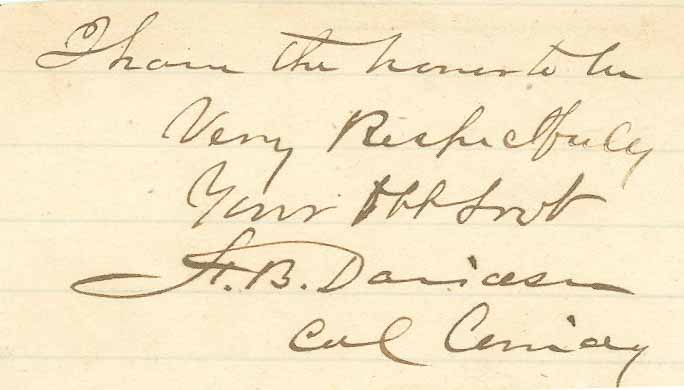 I have the honor to be
Very Respectfully
Your Obt Servt
H. B. Davidson
Col Comdg